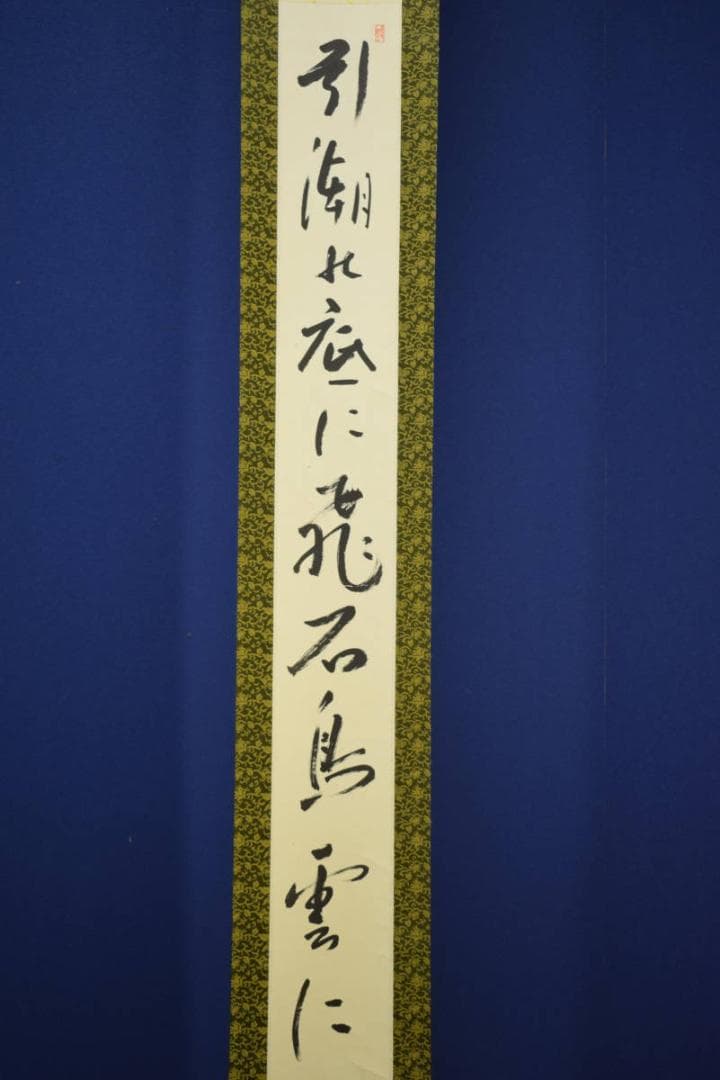 引潮の底に飛石鳥雲に